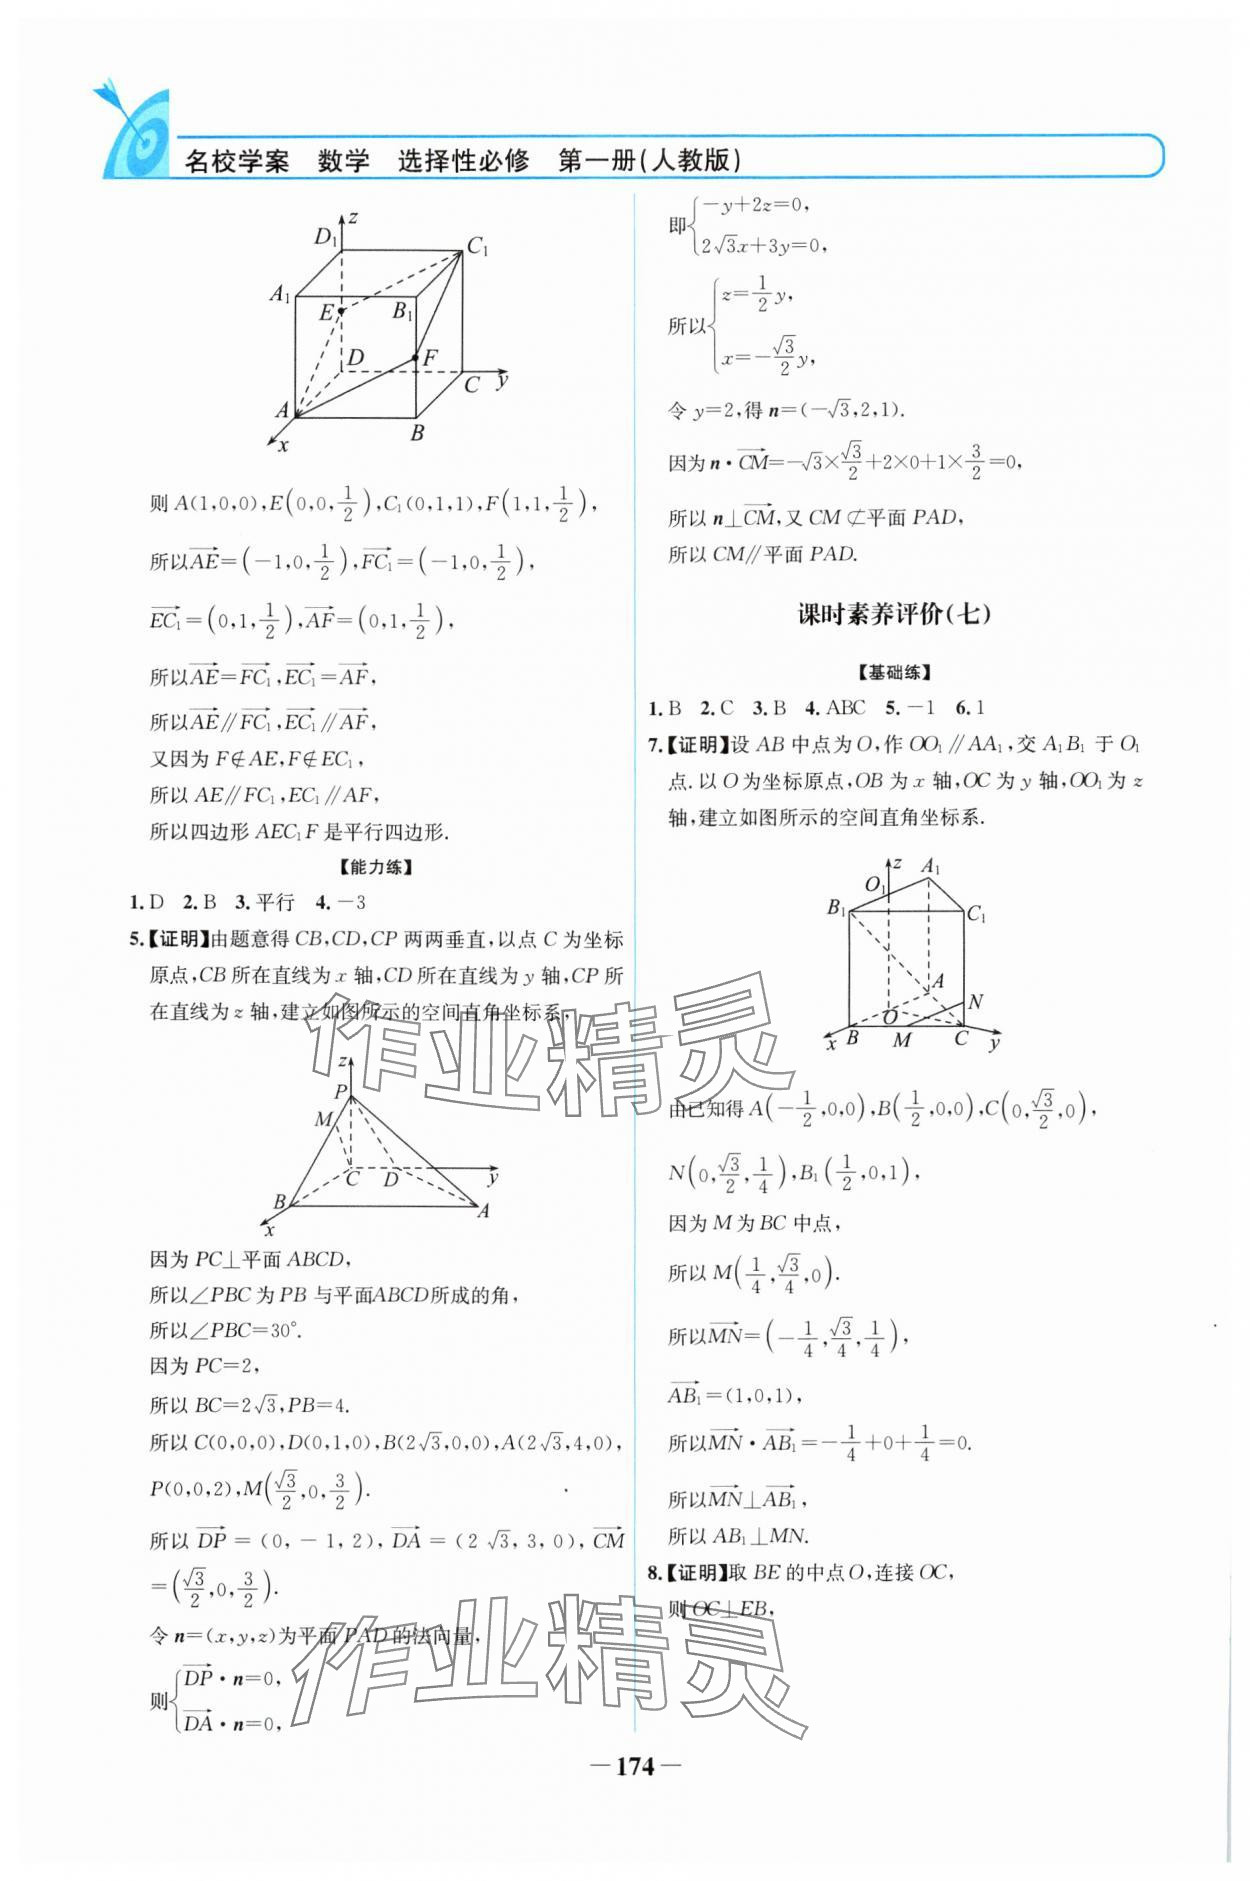 名校学案 数学 选择性必修 第一册(人教版)
z
D₁
C₁
A₁
B₁
E
D
F
C
y
A
B
x
则 A(1,0,0),E(0,0,1/2),C₁(0,1,1),F(1,1,1/2),
所以AE→=(-1,0,1/2),FC₁→=(-1,0,1/2),
EC₁→=(0,1,1/2),AF→=(0,1,1/2),
所以AE→=FC₁→,EC₁→=AF→,
所以AE→∥FC₁→,EC₁→∥AF→,
又因为 F∉AE,F∉EC₁,
所以 AE∥FC₁,EC₁∥AF,
所以四边形 AEC₁F 是平行四边形.
【能力练】
1. D 2. B 3. 平行 4. -3
5.【证明】由题意得 CB,CD,CP 两两垂直,以点 C 为坐标
原点,CB 所在直线为 x 轴,CD 所在直线为 y 轴,CP 所
在直线为 z 轴,建立如图所示的空间直角坐标系,
z
P
M
C
D
y
B
A
x
因为 PC⊥平面 ABCD,
所以∠PBC 为 PB 与平面ABCD所成的角,
所以∠PBC=30°.
因为 PC=2,
所以 BC=2√3,PB=4.
所以 C(0,0,0),D(0,1,0),B(2√3,0,0),A(2√3,4,0),
P(0,0,2),M(√3/2,0,3/2).
所以 DP→=(0,-1,2),DA→=(2√3,3,0),CM→
=(√3/2,0,3/2).
令 n=(x,y,z)为平面 PAD 的法向量,
则{DP→·n=0,
DA→·n=0,
即{-y+2z=0,
2√3x+3y=0,
所以{z=1/2y,
x=-√3/2y,
令 y=2,得 n=(-√3,2,1).
因为 n·CM→=-√3×√3/2+2×0+1×3/2=0,
所以 n⊥CM→,又 CM⊄平面 PAD,
所以 CM∥平面 PAD.
课时素养评价(七)
【基础练】
1. B 2. C 3. B 4. ABC 5. -1 6. 1
7.【证明】设 AB 中点为 O,作 OO₁∥AA₁,交 A₁B₁ 于 O₁
点.以 O 为坐标原点,OB 为 x 轴,OC 为 y 轴,OO₁为 z
轴,建立如图所示的空间直角坐标系.
z
A₁
O₁
B₁
C₁
A
N
O
x
B
M
C
y
由已知得 A(-1/2,0,0),B(1/2,0,0),C(0,√3/2,0),
N(0,√3/2,1/4),B₁(1/2,0,1),
因为 M 为 BC 中点,
所以 M(1/4,√3/4,0).
所以MN→=(-1/4,√3/4,1/4),
AB₁→=(1,0,1),
所以MN→·AB₁→=-1/4+0+1/4=0.
所以MN→⊥AB₁→,
所以 AB₁⊥MN.
8.【证明】取 BE 的中点 O,连接 OC,
则 OC⊥EB,
作业精灵
作业精灵
—174—